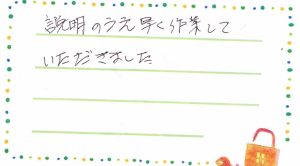 説明のうえ早く作業して
いただきました